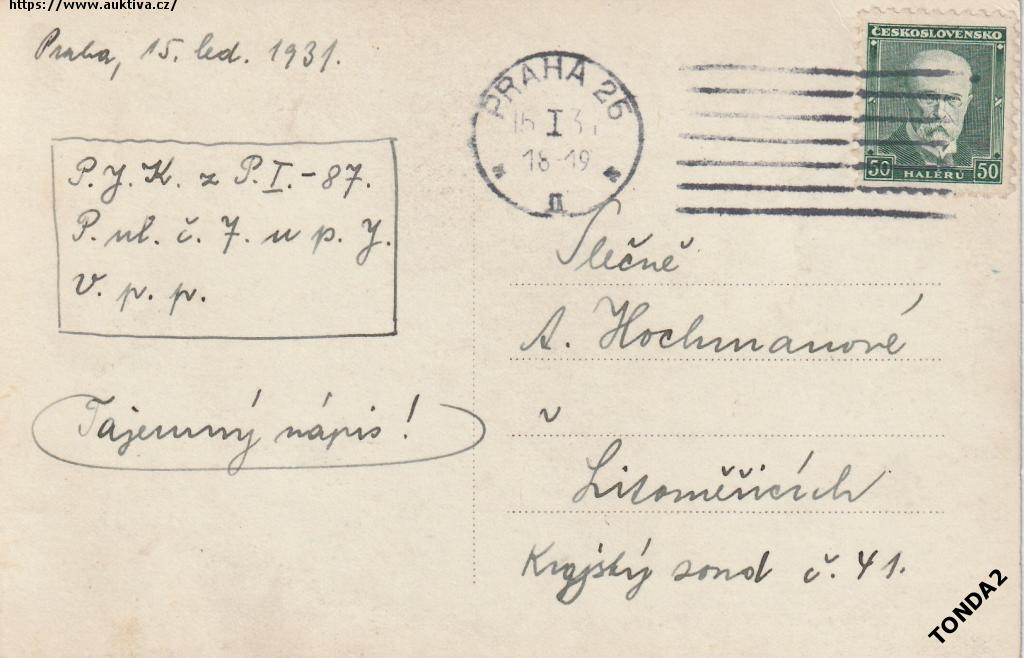 https://www.auktiva.cz/
Praha, 15. led. 1931.
P. J. K. z P. I. - 87.
P. ul. č. 7. u p. J.
V. p. p.
Tajemný nápis!
PRAHA 26
I
18-19
II
ČESKOSLOVENSKO
50 HALÉŘŮ 50
Slečně
A. Hochmanové
v
Litoměřicích
Krajský soud č. 41.
TONDA2